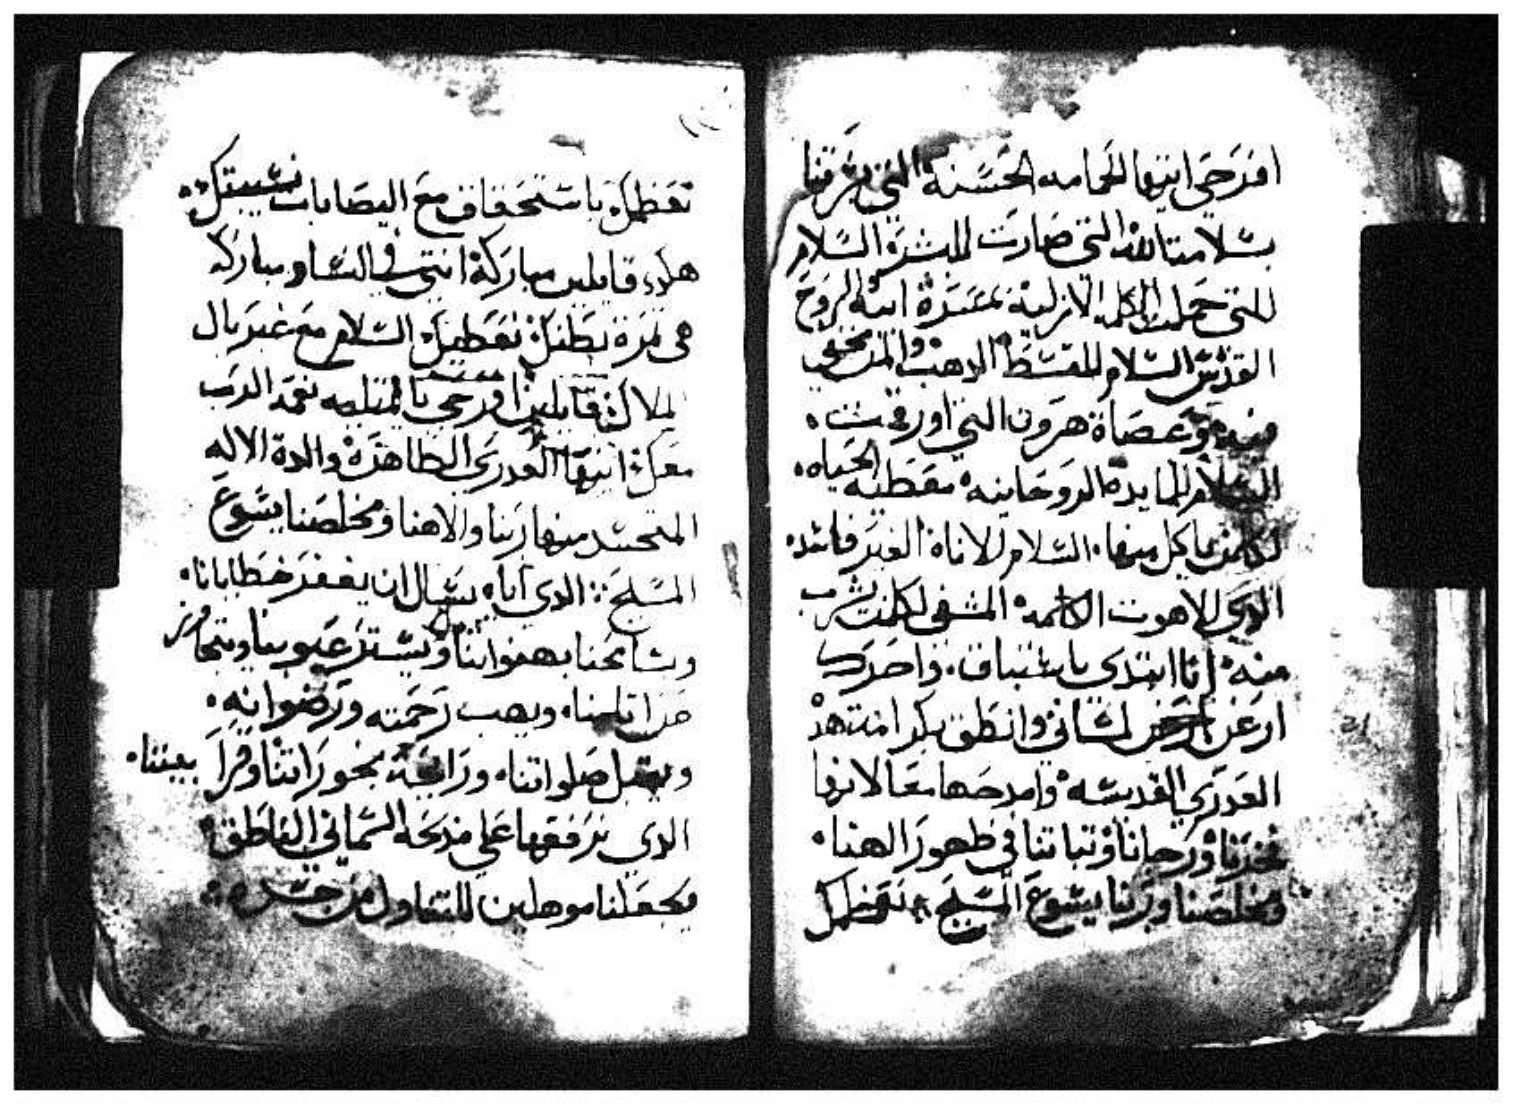 افرحي ايتها الحمامه الحسنة التي بشرتنا
بسلامة الله التي صارت للبشر السلام
للتي حملت الكلمه الازلية متجسدة ابنه الروح
القدس السلام للقسط الدهب والمن مخفي
فيه وعصاة هرون التي اورقت
السلام للمايدة الروحانيه معطيه الحياه
لكلمن ياكل منها السلام للاناة الغير فاسد
الذي للاهوت الكلمه المشفي لكلمن يشرب
منه انا ابتدي باشتياق واحرك
ارغن لساني وانطق بكرامة هذه
العدري القديسه وامدحها معا لانها
فخرنا ورجانا وثباتنا في ظهور الهنا
ومخلصنا وربنا يسوع المسيح نعظمك
نعظمك باستحقاق مع اليصابات نسيبتك
هكذا قايلين مباركة انتي في النساء ومباركه
هي ثمرة بطنك نعطيك السلام مع غبريال
الملاك قايلين افرحي يا ممتليه نعمه الرب
معك ايتها العدري الطاهرة والدة الاله
المتجسد منها ربنا والاهنا ومخلصنا يسوع
المسيح الدي اياه نسال ان يغفر خطايانا
وسامحنا بهفواتنا ويستر عيوبنا ويتجاوز
عن زلاتنا ويهب رحمته ورضوانه
ويقبل صلواتنا ورايحة بخوراتنا وقرابيننا
الدي نرفعها علي مدبحه السماني الناطق
فيجعلنا موهلين للتناول من جسده